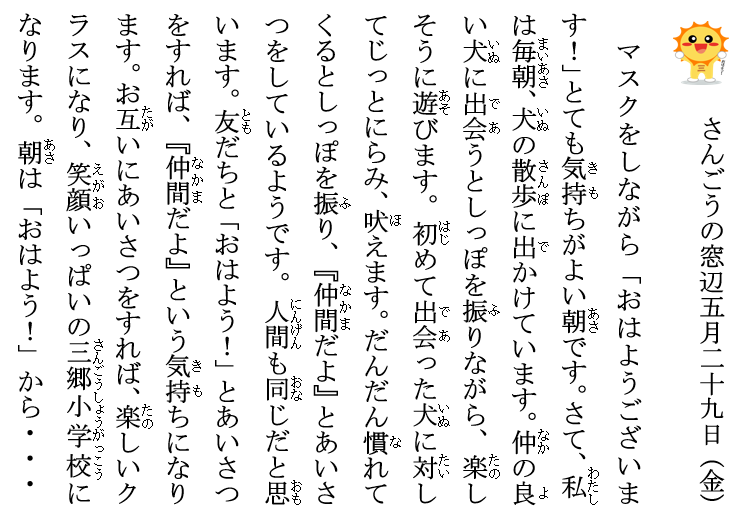 さんごうの窓辺五月二十九日（金）
マスクをしながら「おはようございま
す！」とても気持ちがよい朝です。さて、私
は毎朝、犬の散歩に出かけています。仲の良
い犬に出会うとしっぽを振りながら、楽し
そうに遊びます。初めて出会った犬に対し
てじっとにらみ、吠えます。だんだん慣れて
くるとしっぽを振り、『仲間だよ』とあいさ
つをしているようです。人間も同じだと思
います。友だちと「おはよう！」とあいさつ
をすれば、『仲間だよ』という気持ちになり
ます。お互いにあいさつをすれば、楽しいク
ラスになり、笑顔いっぱいの三郷小学校に
なります。朝は「おはよう！」から・・・